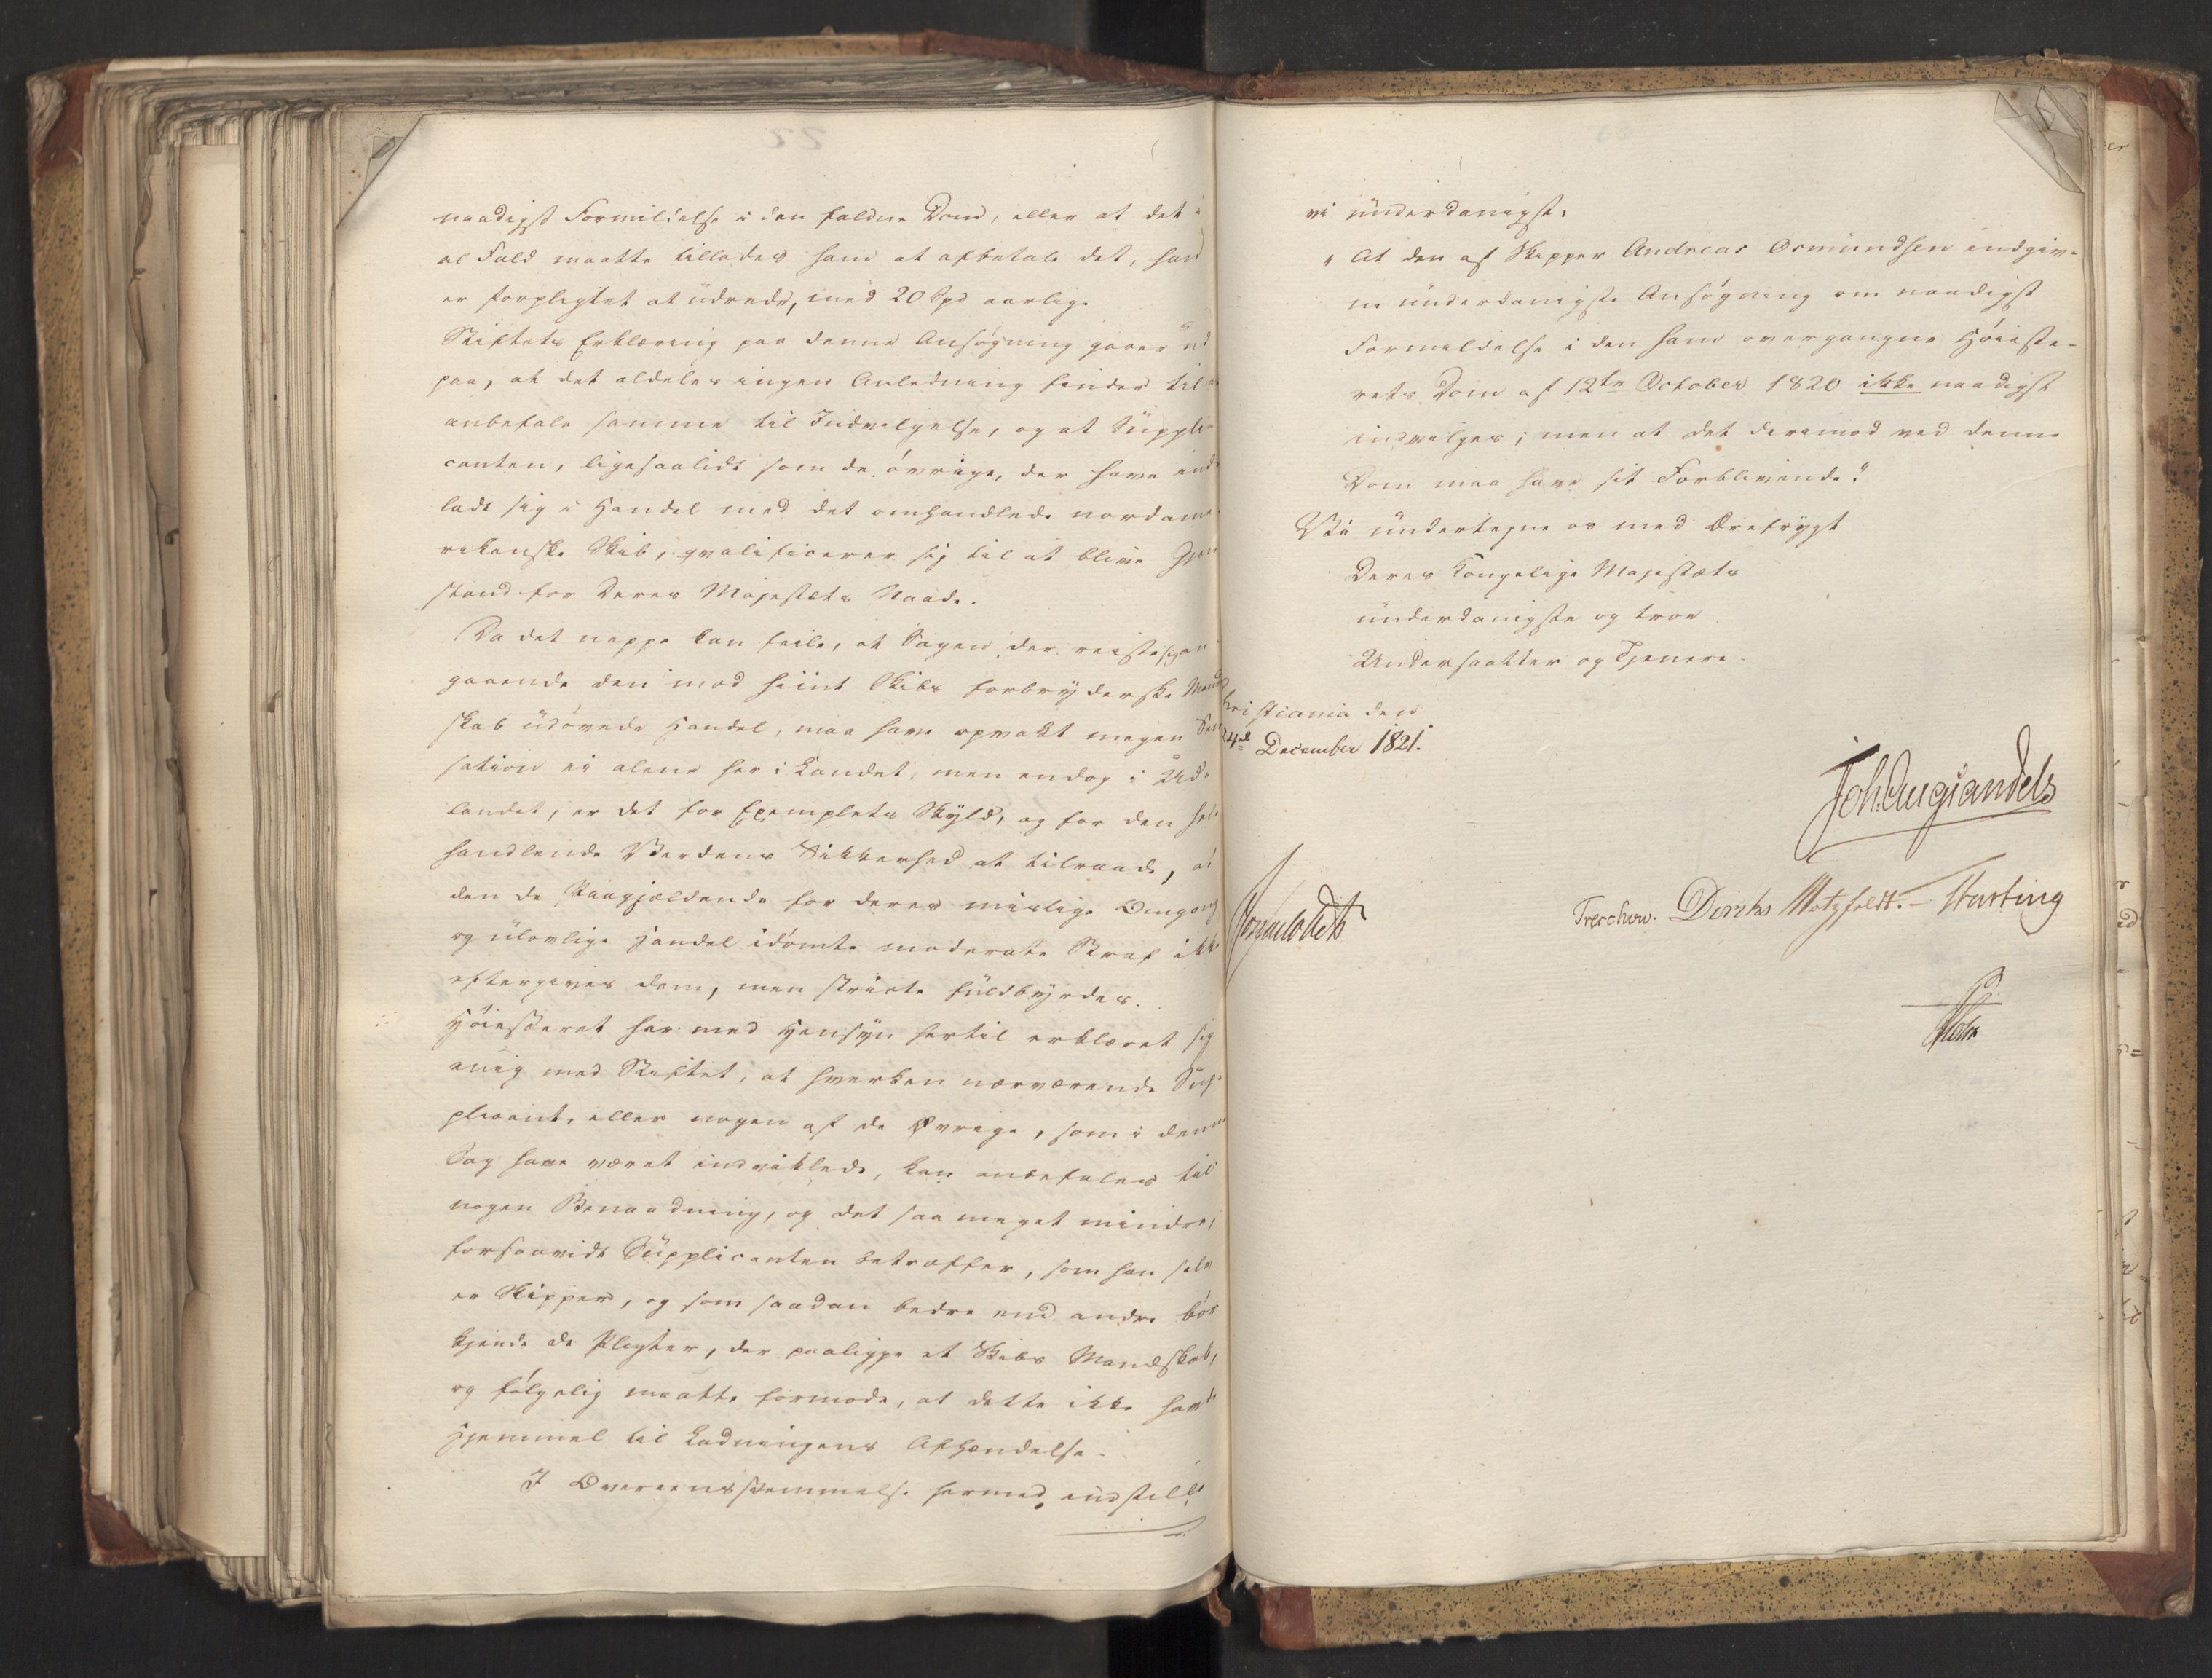 naadigst Formildelse i den faldne Dom, eller at det i
al Fald maatte tillades ham at afbetale det, han
er forpligtet at üdrede, med 20 Spd aarlig.
Stiftets Erklæring paa denne Ansøgning gaaer üd
paa, at det aldeles ingen Anledning finder til at
anbefale samme til Indvilgelse, og at Süppli-
canten, ligesaalidt som de øvrige, der have ind-
ladt sig i Handel med det omhandlede nordame-
rikanske Skib, qvalificerer sig til at blive Gjen-
stand for Deres Majestæts Naade.
Da det neppe kan feile, at Sagen, der reiste sig an-
gaaende den med hiint Skibs forbryderske Mand-
skab üdøvede Handel, maa have opvakt megen Sen-
sation ei alene her i Landet, men endog i Ud-
landet, er det for Exemplets Skyld, og for den hele
handlende Verdens Sikkerhed at tilraade, at
den de Paagjældende for deres mislige Omgang
og ülovlige Handel idømte moderate Straf ikke
eftergives dem, men stricte füldbyrdes.
Høiesteret har med Hensyn hertil erklæret sig
enig med Stiftet, at hverken nærværende Süp-
plicant, eller nogen af de Øvrige, som i denne
Sag have været indviklede, kan anbefales til
nogen Benaadning, og det saa meget mindre,
forsaavidt Süpplicanten betræffer, som han selv
er Skipper, og som saadan bedre end andre bør
kjende de Pligter, der paaligge et Skibs Mandskab,
og følgelig maatte formode, at dette ikke havde
Hjemmel til Ladningens Afhændelse.
I Overeensstemmelse hermed indstille
vi ünderdanigst:
"At den af Skipper Andreas Osmündsen indgiv-
ne ünderdanigste Ansøgning om naadigst
Formildelse i den ham overgangne Høieste-
rets Dom af 12te October 1820 ikke naadigst
indvilges; men at det derimod ved denne
Dom maa have sit Forblivende."
Vi ündertegne os med Ærefrygt
Deres Kongelige Majestæts
ünderdanigste og troe
Undersaatter og Tjenere.
Christiania den
24de December 1821.
Joh. Aug Sandels
Sommerfeldt
Treschow. Diriks Motzfeldt. Hasting
Holst